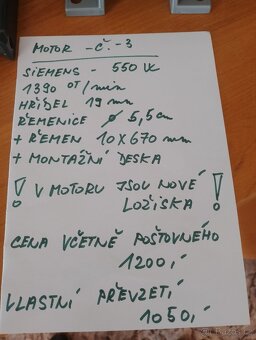 MOTOR -Č.-3
SIEMENS - 550 W
1390 OT/min
HŘÍDEL 19 mm
ŘEMENICE ø 5,5cm
+ ŘEMEN 10X670 mm
+ MONTAŽNÍ DESKA
! V MOTORU JSOU NOVÉ !
LOŽISKA
CENA VČETNĚ POŠTOVNÉHO
1200,-
VLASTNÍ PŘEVZETÍ
1050,-